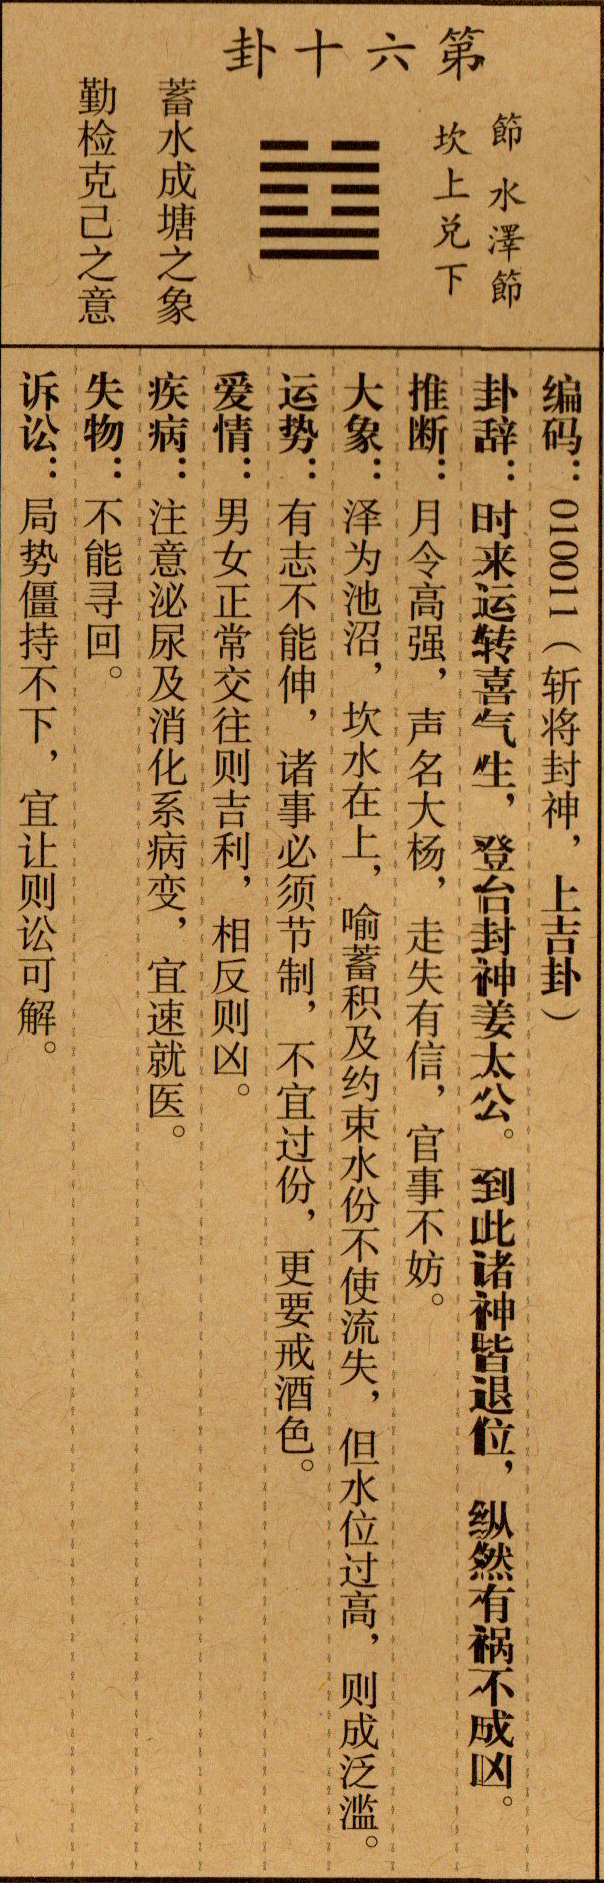 第六十卦
節 水澤節
坎上兑下
蓄水成塘之象
勤检克己之意
编码：010011（斩将封神，上吉卦）
卦辞：时来运转喜气生，登台封神姜太公。到此诸神皆退位，纵然有祸不成凶。
推断：月令高强，声名大杨，走失有信，官事不妨。
大象：泽为池沼，坎水在上，喻蓄积及约束水份不使流失，但水位过高，则成泛滥。
运势：有志不能伸，诸事必须节制，不宜过份，更要戒酒色。
爱情：男女正常交往则吉利，相反则凶。
疾病：注意泌尿及消化系病变，宜速就医。
失物：不能寻回。
诉讼：局势僵持不下，宜让则讼可解。